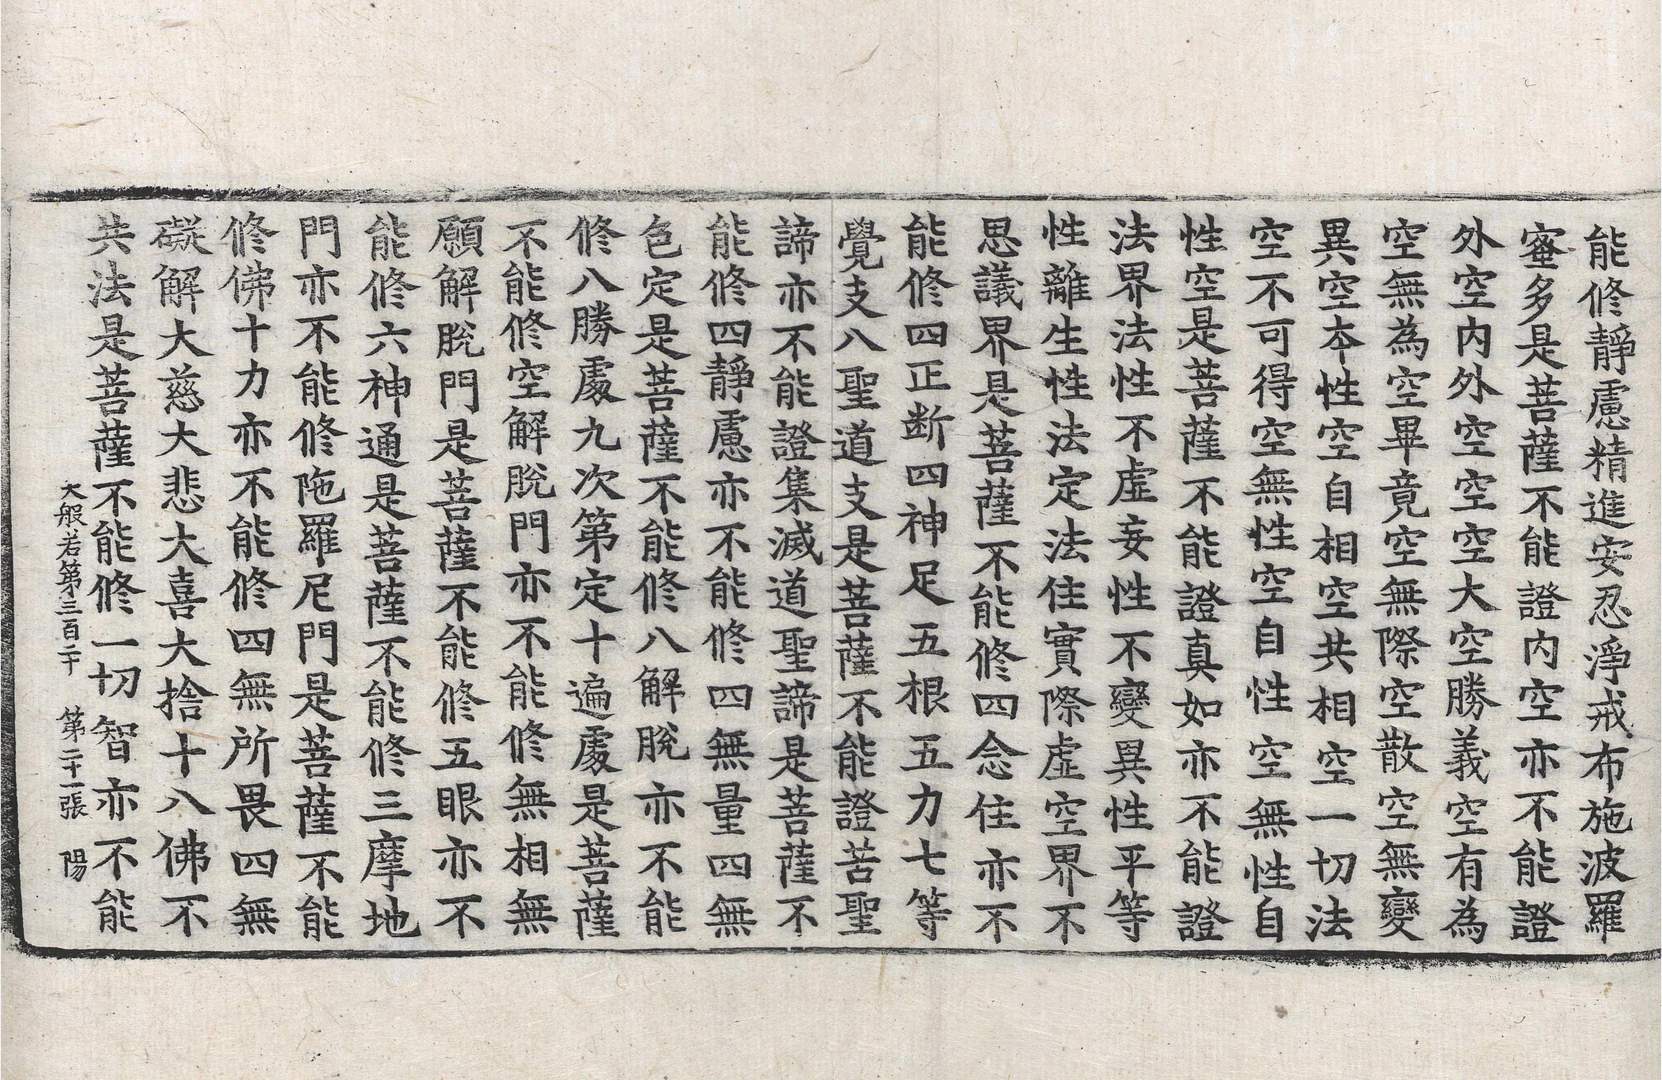 能修靜慮精進安忍淨戒布施波羅
蜜多是菩薩不能證內空亦不能證
外空內外空空空大空勝義空有為
空無為空畢竟空無際空散空無變
異空本性空自相空共相空一切法
空不可得空無性空自性空無性自
性空是菩薩不能證真如亦不能證
法界法性不虛妄性不變異性平等
性離生性法定法住實際虛空界不
思議界是菩薩不能修四念住亦不
能修四正斷四神足五根五力七等
覺支八聖道支是菩薩不能證苦聖
諦亦不能證集滅道聖諦是菩薩不
能修四靜慮亦不能修四無量四無
色定是菩薩不能修八解脫亦不能
修八勝處九次第定十遍處是菩薩
不能修空解脫門亦不能修無相無
願解脫門是菩薩不能修五眼亦不
能修六神通是菩薩不能修三摩地
門亦不能修陁羅尼門是菩薩不能
修佛十力亦不能修四無所畏四無
礙解大慈大悲大喜大捨十八佛不
共法是菩薩不能修一切智亦不能
大般若第三百二十 第二十一張 陽